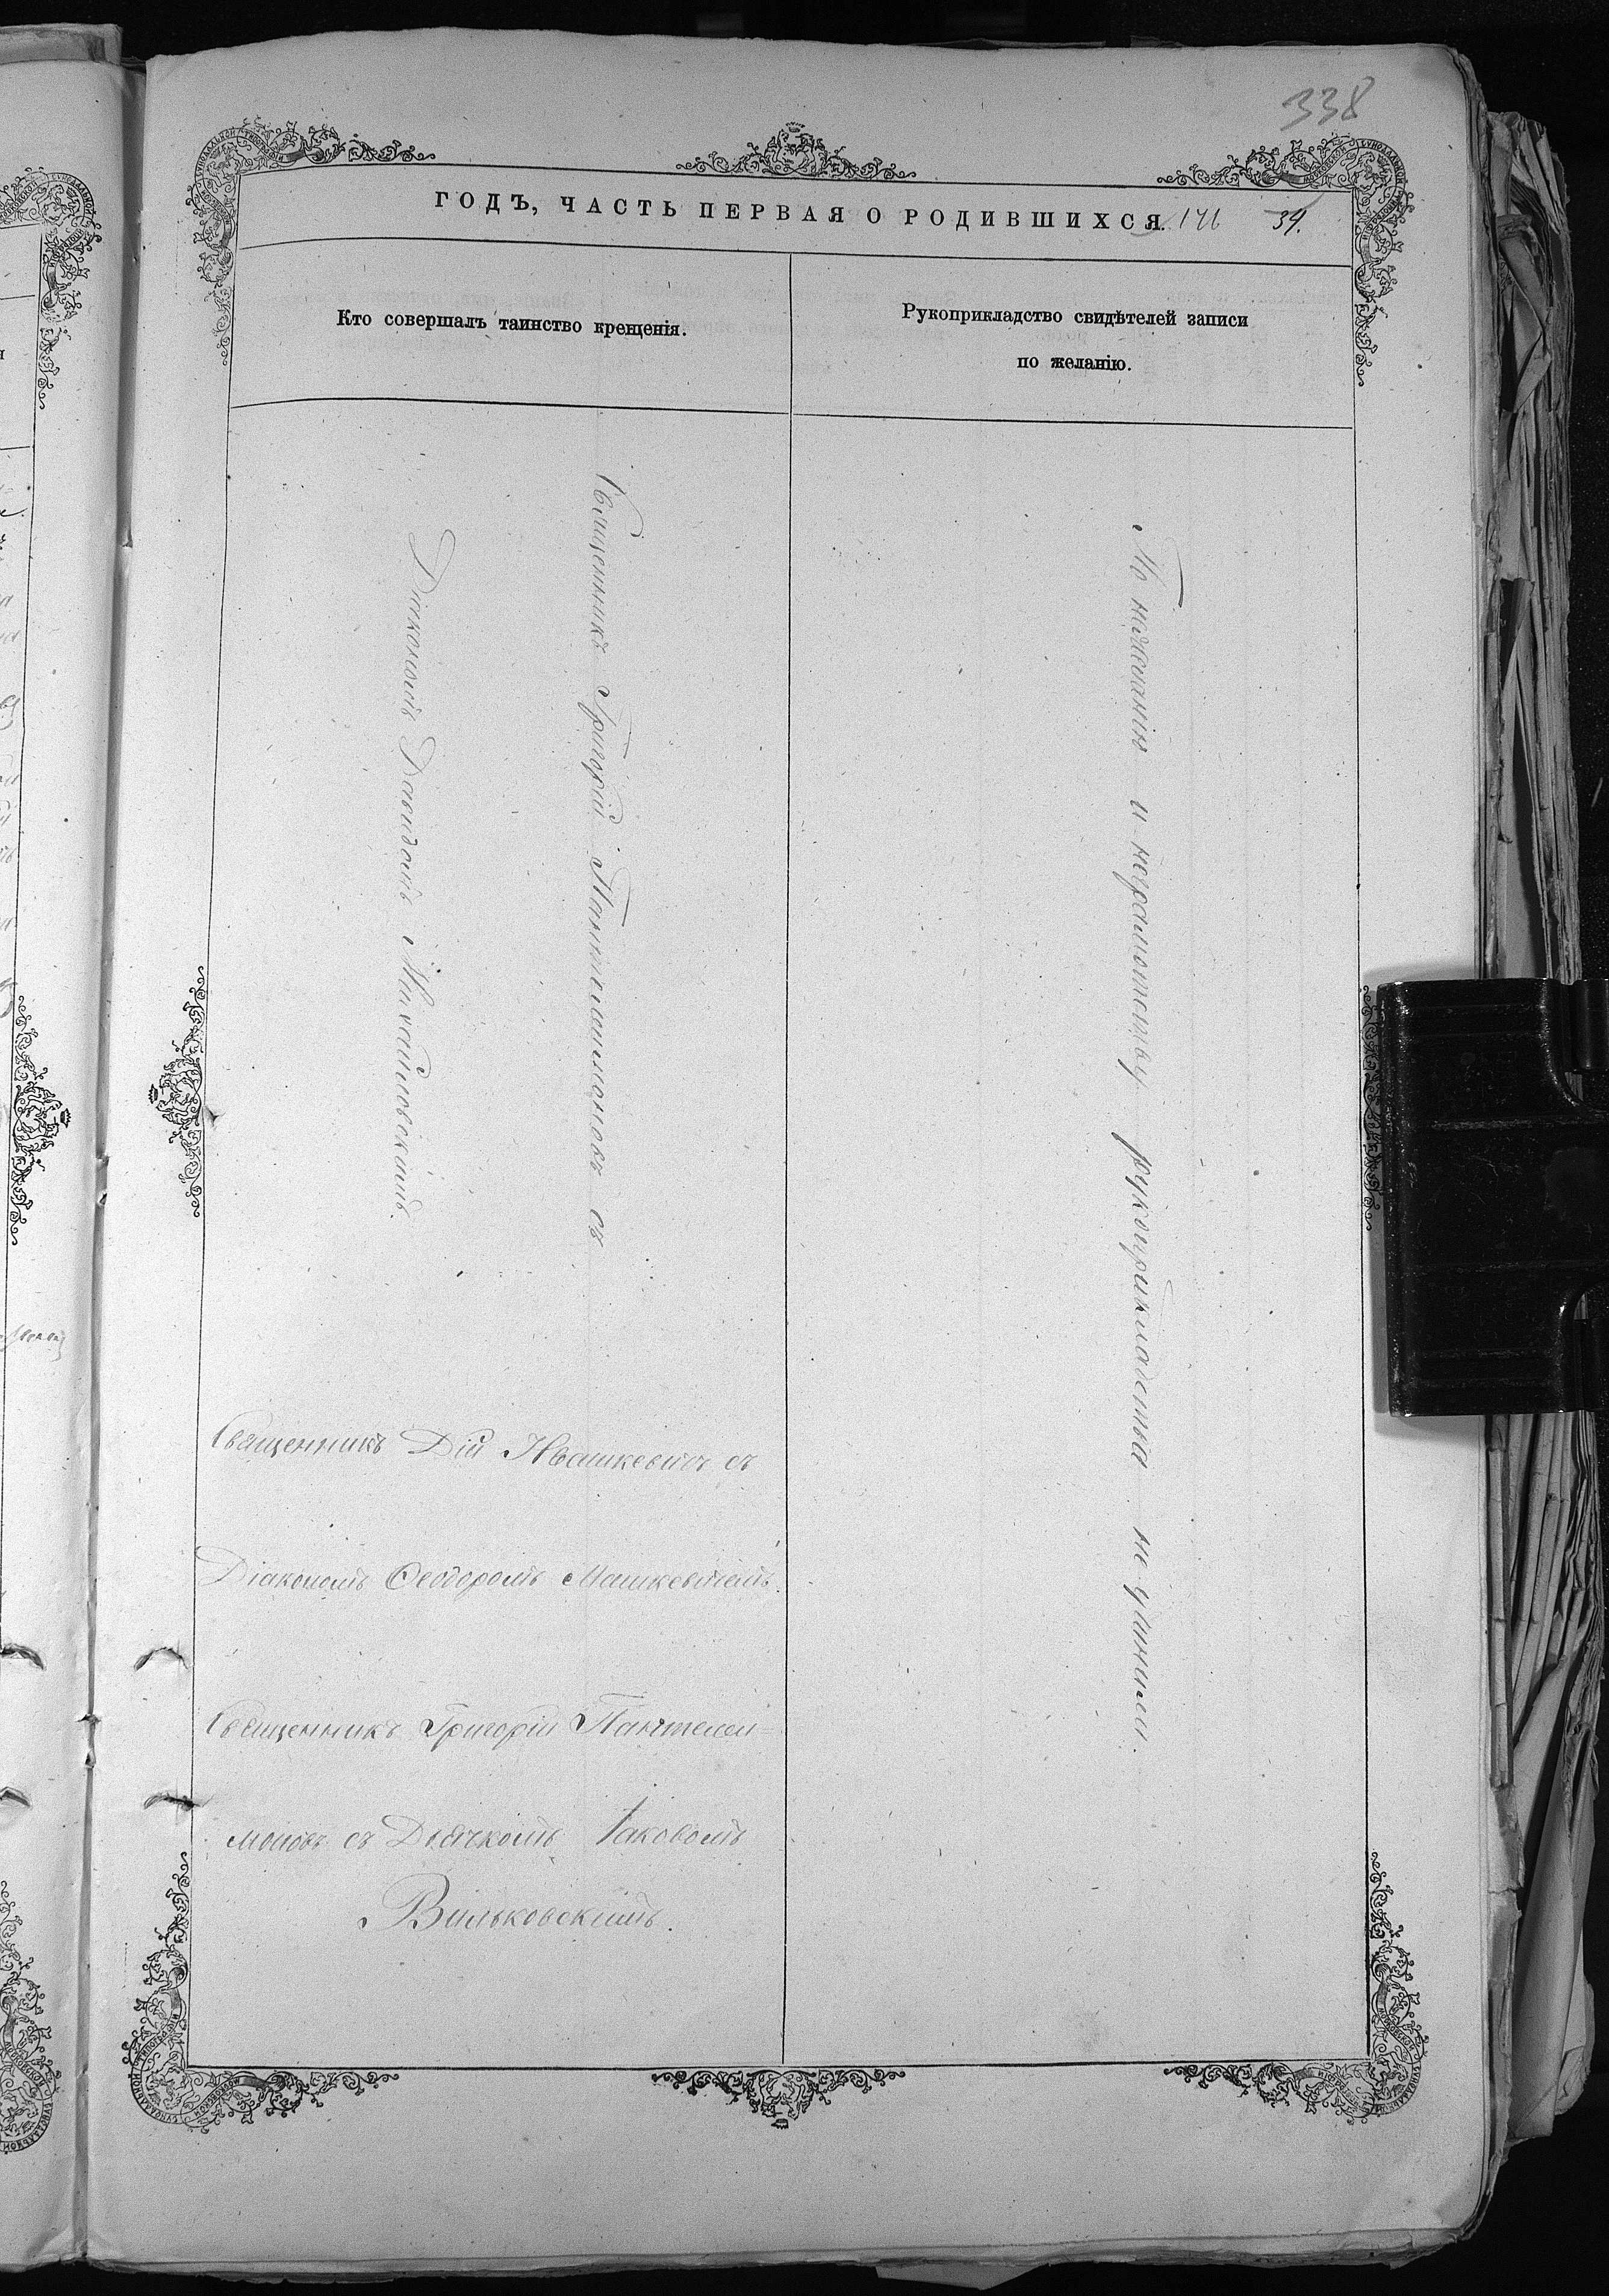 338
ГОДЪ, ЧАСТЬ ПЕРВАЯ О РОДИВШИХСЯ. 34.
Кто совершалъ таинство крещенія.
Рукоприкладство свидѣтелей записи
по желанію.
Священникъ Григорій Пантелеимоновъ съ
Діакономъ Давидомъ Михайловскимъ.
Священникъ Дій Ивашкевичъ съ
Діакономъ Ѳеодоромъ Машкевичемъ.
Священникъ Григорій Пантелеи-
моновъ съ Дьячкомъ Іаковомъ
Вильковскимъ.
По нежеланію и неграмотству рукоприкладства не учинили.